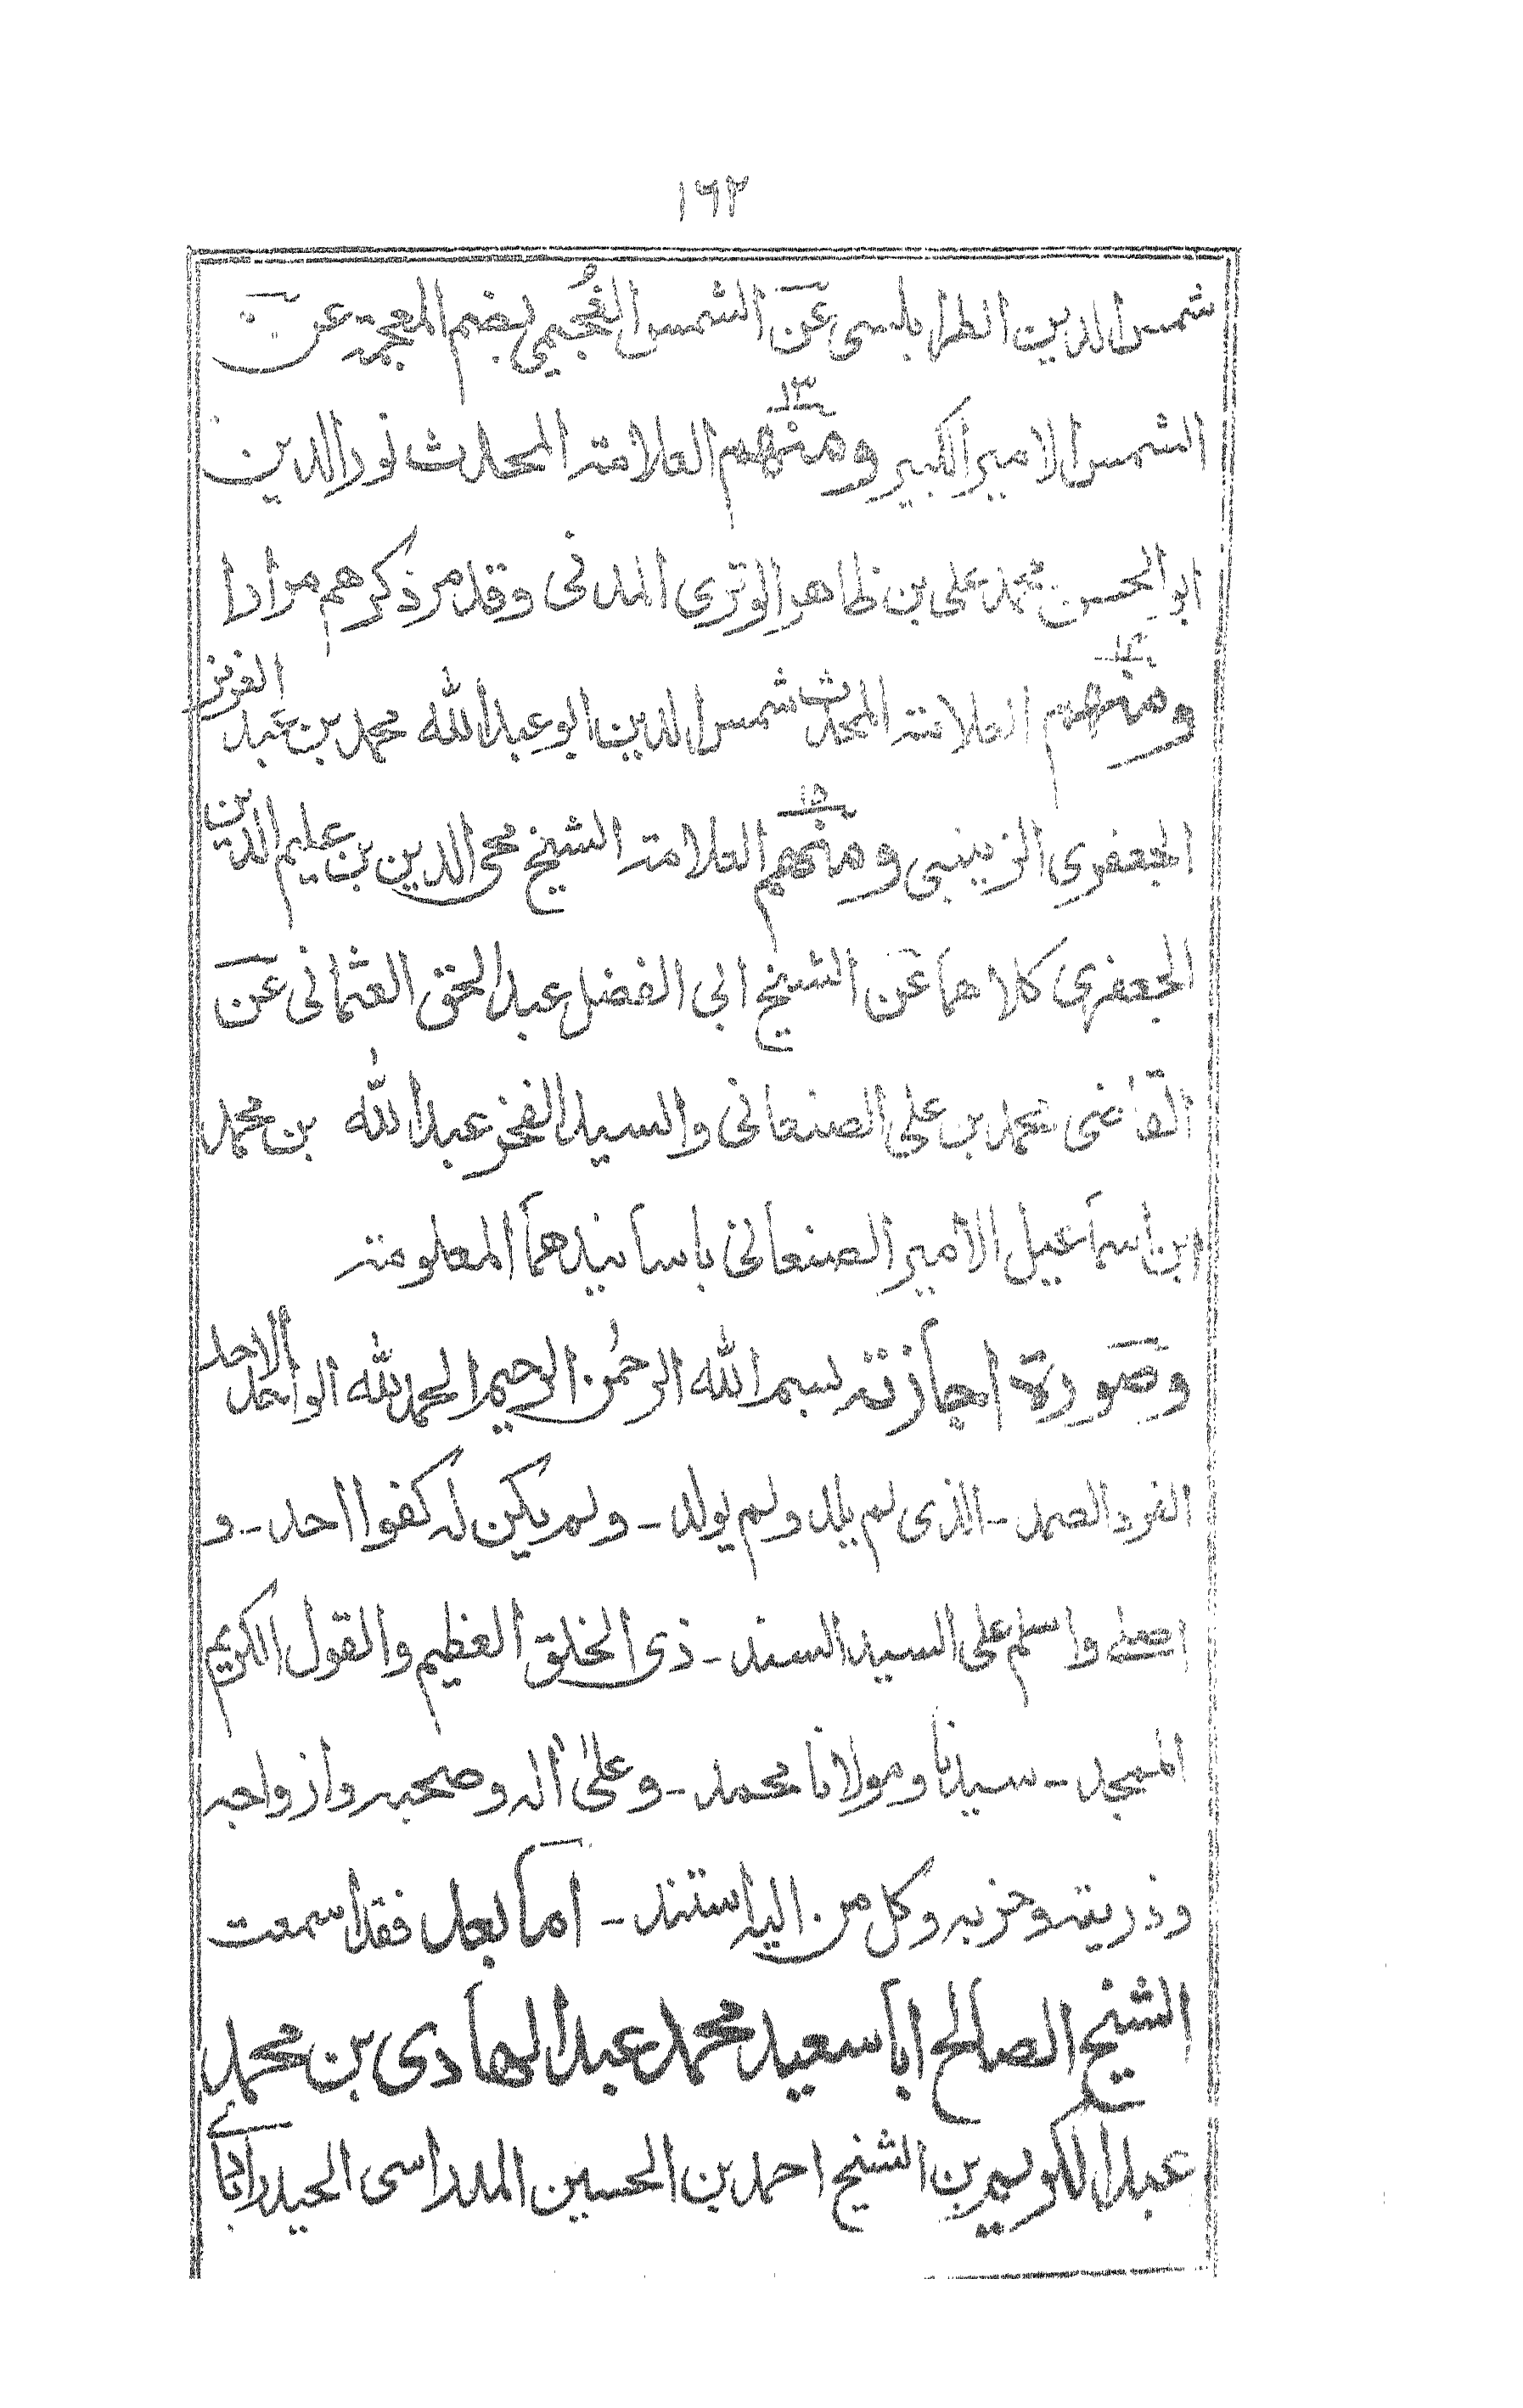 ١٦٢
شمس الدين الطرابلسى عن الشمس الغُجيمى بضم المعجمة عن
الشمس الامير الكبير ومنهم ١٣ العلامة المحدث نور الدين
ابو الحسن محمد على بن ظاهر الوترى المدنى وقد مر ذكرهم مرارا
ومنهم ١٤ العلامة المحدث شمس الدين ابو عبد الله محمد بن عبد العزيز
الجعفرى الزينبى ومنهم ١٥ العلامة الشيخ محى الدين بن عليم الدين
الجعفرى كلاهما عن الشيخ ابى الفضل عبد الحق العثمانى عن
القاضى محمد بن على الصنعانى والسيد الفخر عبد الله بن محمد
ابن اسماعيل الامير الصنعانى باسانيدهما المعلومة
وصورة اجازته بسم الله الرحمٰن الرحيم الحمد لله الواحد الاحد
الفرد الصمد ـ الذى لم يلد ولم يولد ـ ولم يكن له كفوا احد ـ و
اصلى واسلم على السيد السند ـ ذى الخلق العظيم والقول الكريم
الممجد ـ سيدنا ومولانا محمد ـ وعلىٰ اله وصحبه وازواجه
وذريته وحزبه وكل من اليه استند ـ اما بعد فقد اسمعت
الشيخ الصالح ابا سعيد محمد عبد الهادى بن محمد
عبد الكريم بن الشيخ احمد بن الحسين المدراسى الحيدرابادى